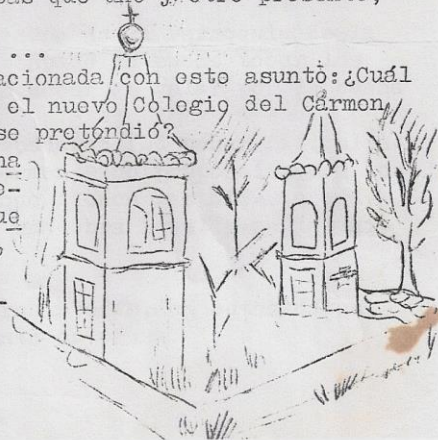 que uno y otro
...
acionada con este asunto:¿Cuál
el nuevo Colegio del Cármen
se pretendió?
na
o-
ue